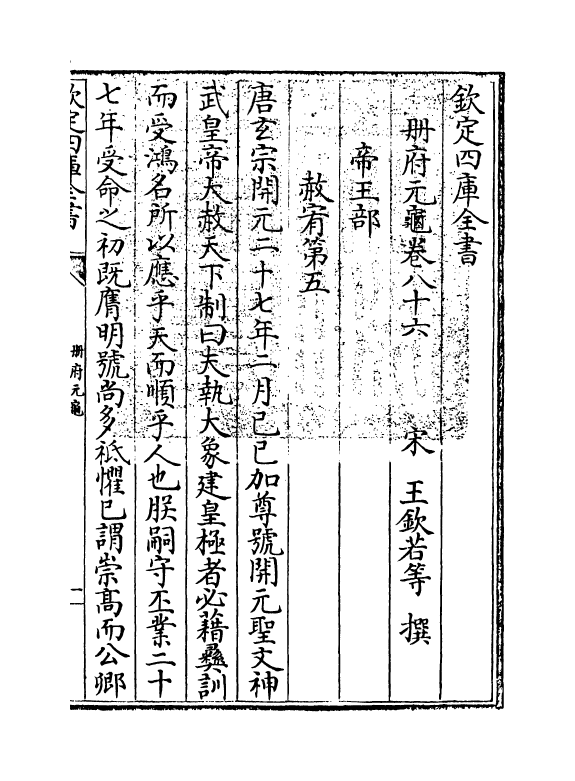 欽定四庫全書
册府元龜卷八十六　宋　王欽若等　撰
帝王部
赦宥第五
唐玄宗開元二十七年二月己巳加尊號開元聖文神
武皇帝大赦天下制曰夫執大象建皇極者必藉彝訓
而受鴻名所以應乎天而順乎人也朕嗣守丕業二十
七年受命之初既膺明號尚多祗懼已謂崇高而公卿
欽定四庫全書
册府元龜